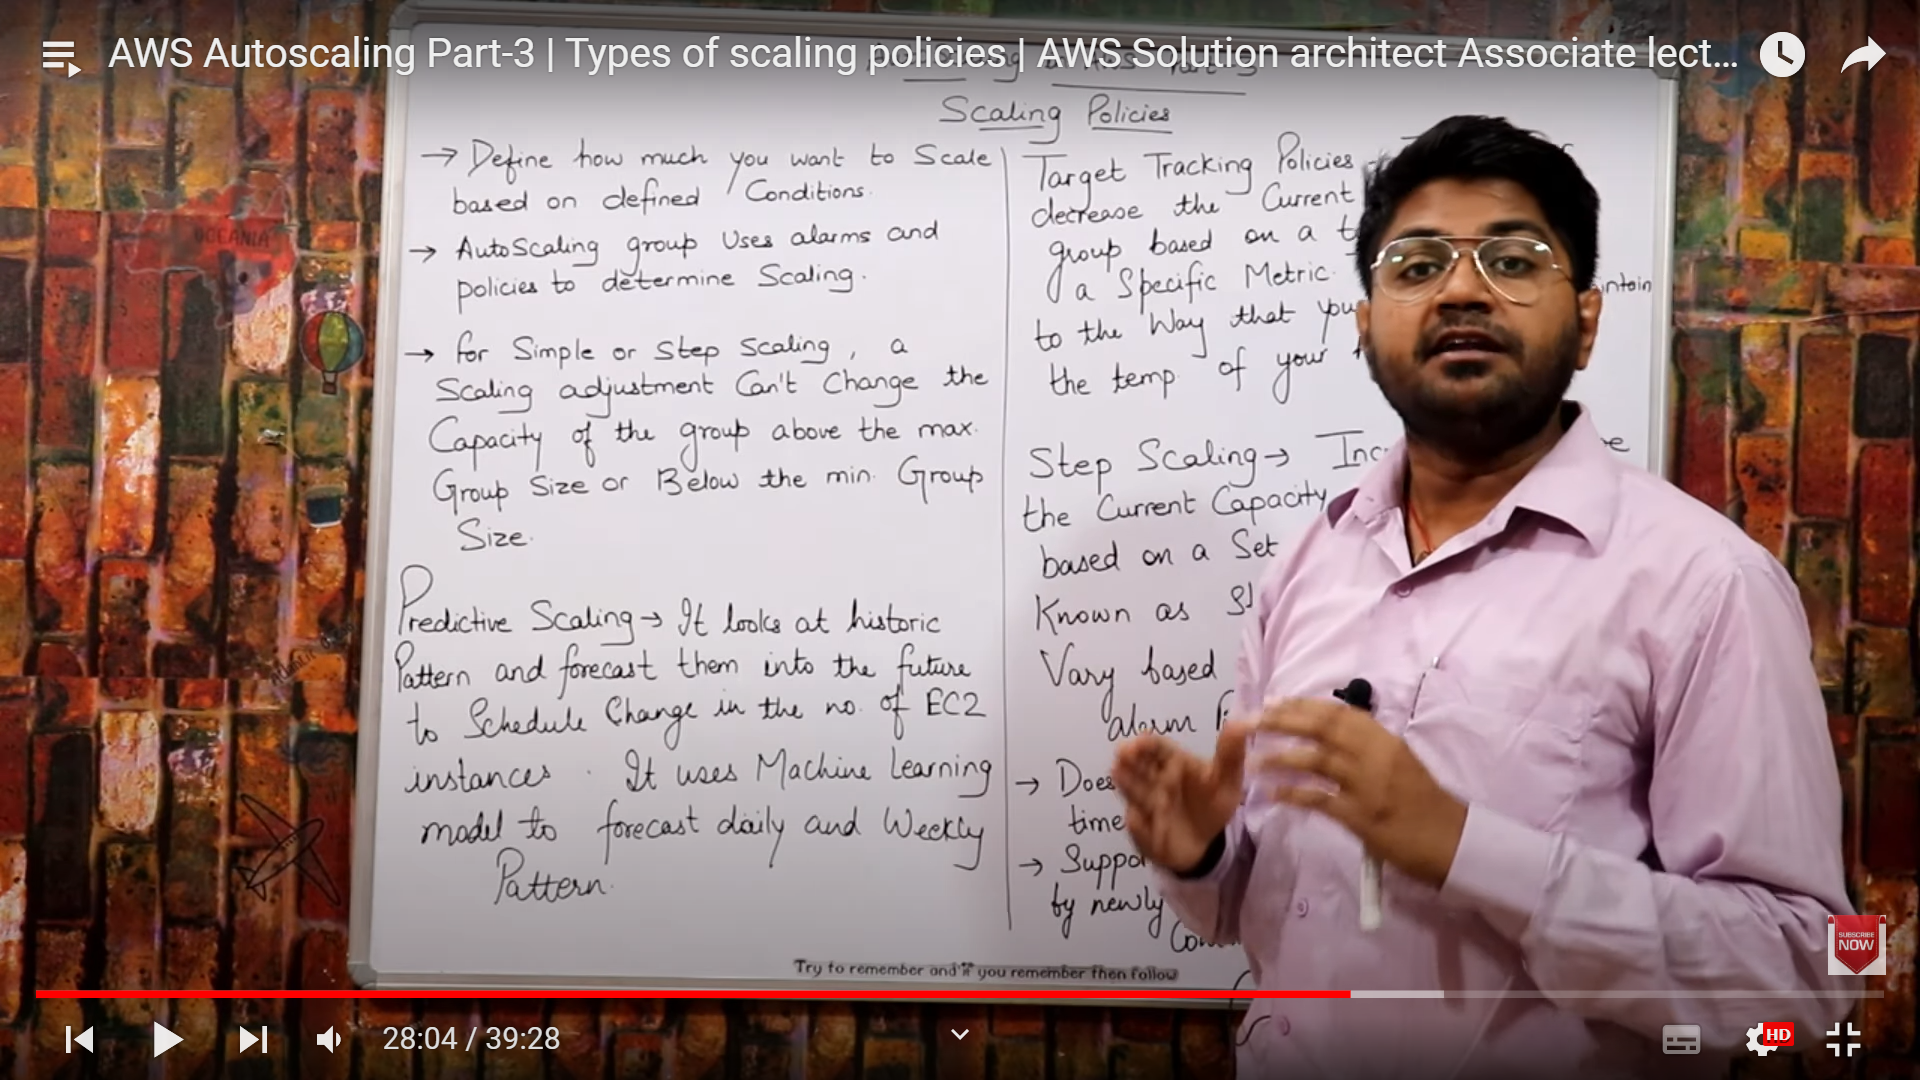 AWS Autoscaling Part-3 | Types of scaling policies | AWS Solution architect Associate lect...
Scaling Policies
→ Define how much you want to Scale
based on defined Conditions.
→ AutoScaling group Uses alarms and
policies to determine Scaling.
→ for Simple or Step Scaling, a
Scaling adjustment Can't Change the
Capacity of the group above the max.
Group Size or Below the min. Group
Size.
Predictive Scaling → It looks at historic
Pattern and forecast them into the future
to Schedule Change in the no. of EC2
instances. It uses Machine Learning
model to forecast daily and Weekly
Pattern.
Target Tracking Policies
decrease the Current
group based on a t
a Specific Metric.
intain
to the Way that you
the temp. of your
Step Scaling → Inc
the Current Capacity
based on a Set
Known as
Vary based
alarm
→ Does
time
→ Suppo
by newly
Try to remember and if you remember then follow
SUBSCRIBE
NOW
28:04 / 39:28
HD